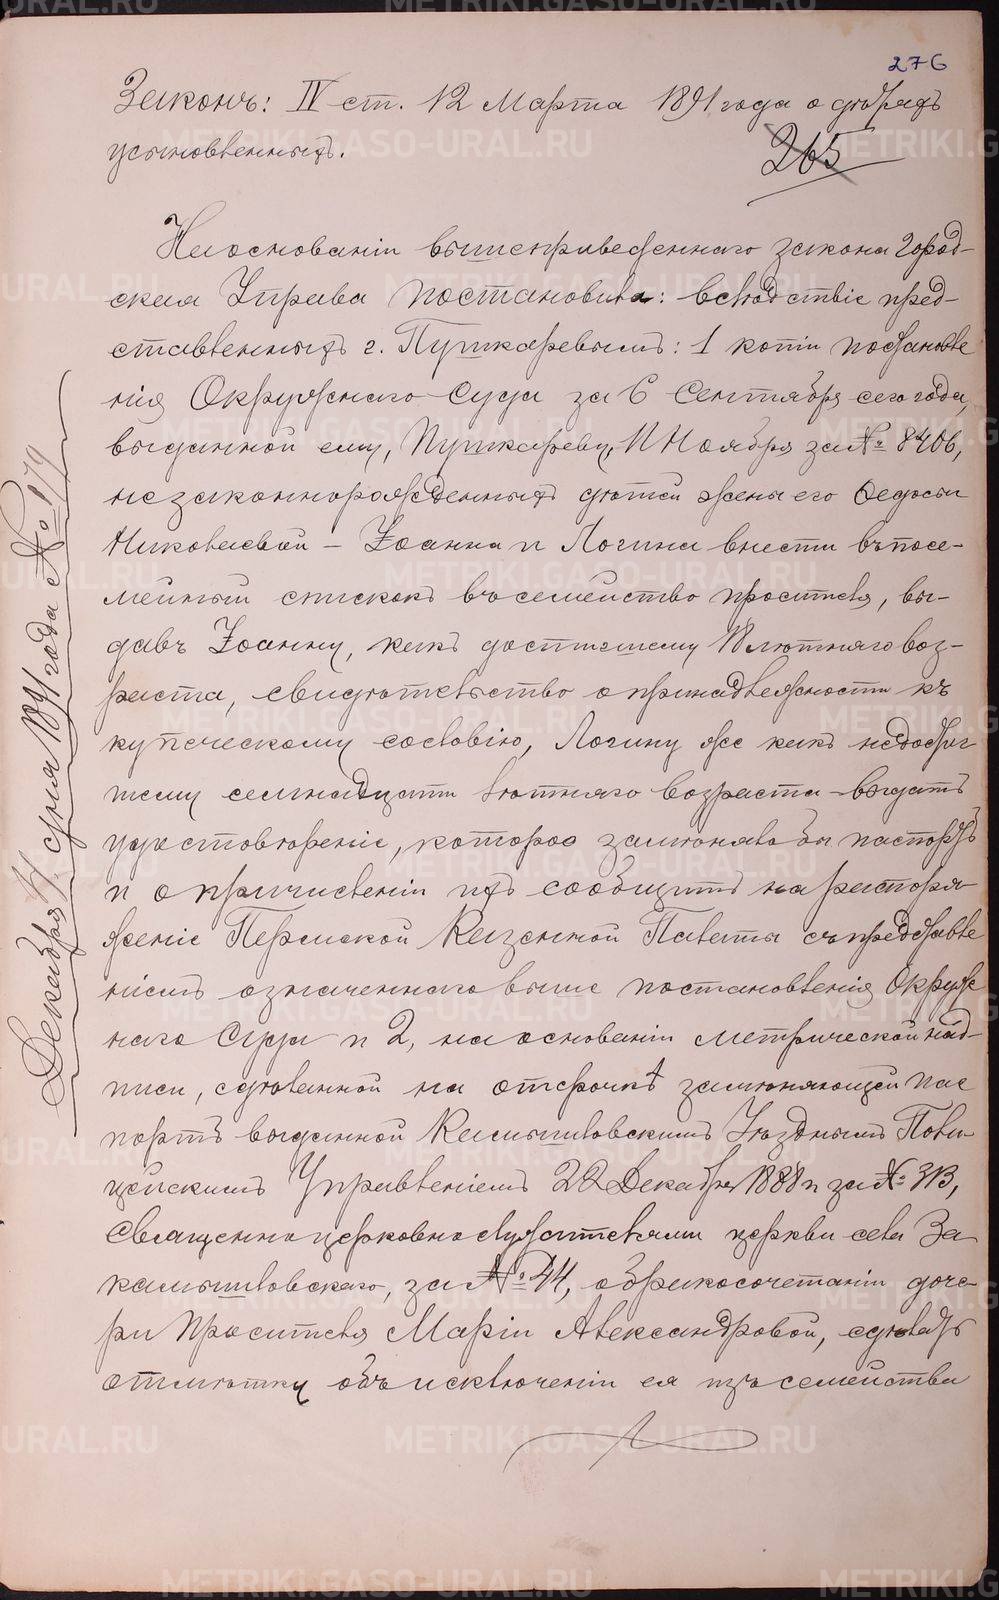 276
Законъ: IV ст. 12 Марта 1891 года о дѣтяхъ
усыновленныхъ.
265
На основаніи вышеприведеннаго закона Город-
ская Управа постановила: вслѣдствіе пред-
ставленныхъ г. Пушкаревымъ: 1 копіи постановле
нія Окружнаго Суда за 6 Сентября сего года,
выданной ему, Пушкареву, 11 Ноября за № 8406,
незаконнорожденныхъ дѣтей жены его Ѳедосьи
Николаевой – Іоанна и Логина внести въ посе-
мейный списокъ въ семейство просителя, вы-
давъ Іоанну, какъ достигшему 17 лѣтняго воз-
раста, свидѣтельство о принадлежности къ
купеческому сословію, Логину же какъ недостиг
шему семнадцати лѣтняго возраста – выдать
удостовѣреніе, которое замѣняло бы паспортъ
и о причисленіи ихъ сообщить на распоря
женіе Пермской Казенной Палаты съ представле
ніемъ означеннаго выше постановленія Окруж
наго Суда и 2, на основаніи метрической над-
писи, сдѣланной на отсрочкѣ замѣняющей пас
портъ выданной Камышловскимъ Уѣзднымъ Поли
цейскимъ Управленіемъ 22 Декабря 1888 г за № 313,
священно церковно служителями церкви села За
камышловскаго, за № 44, о бракосочетаніи доче-
ри просителя Маріи Александровой, сдѣлать
отмѣтку объ исключеніи ея изъ семейства
Декабря 17 дня 1891 года № 179
METRIKI.GASO-URAL.RU